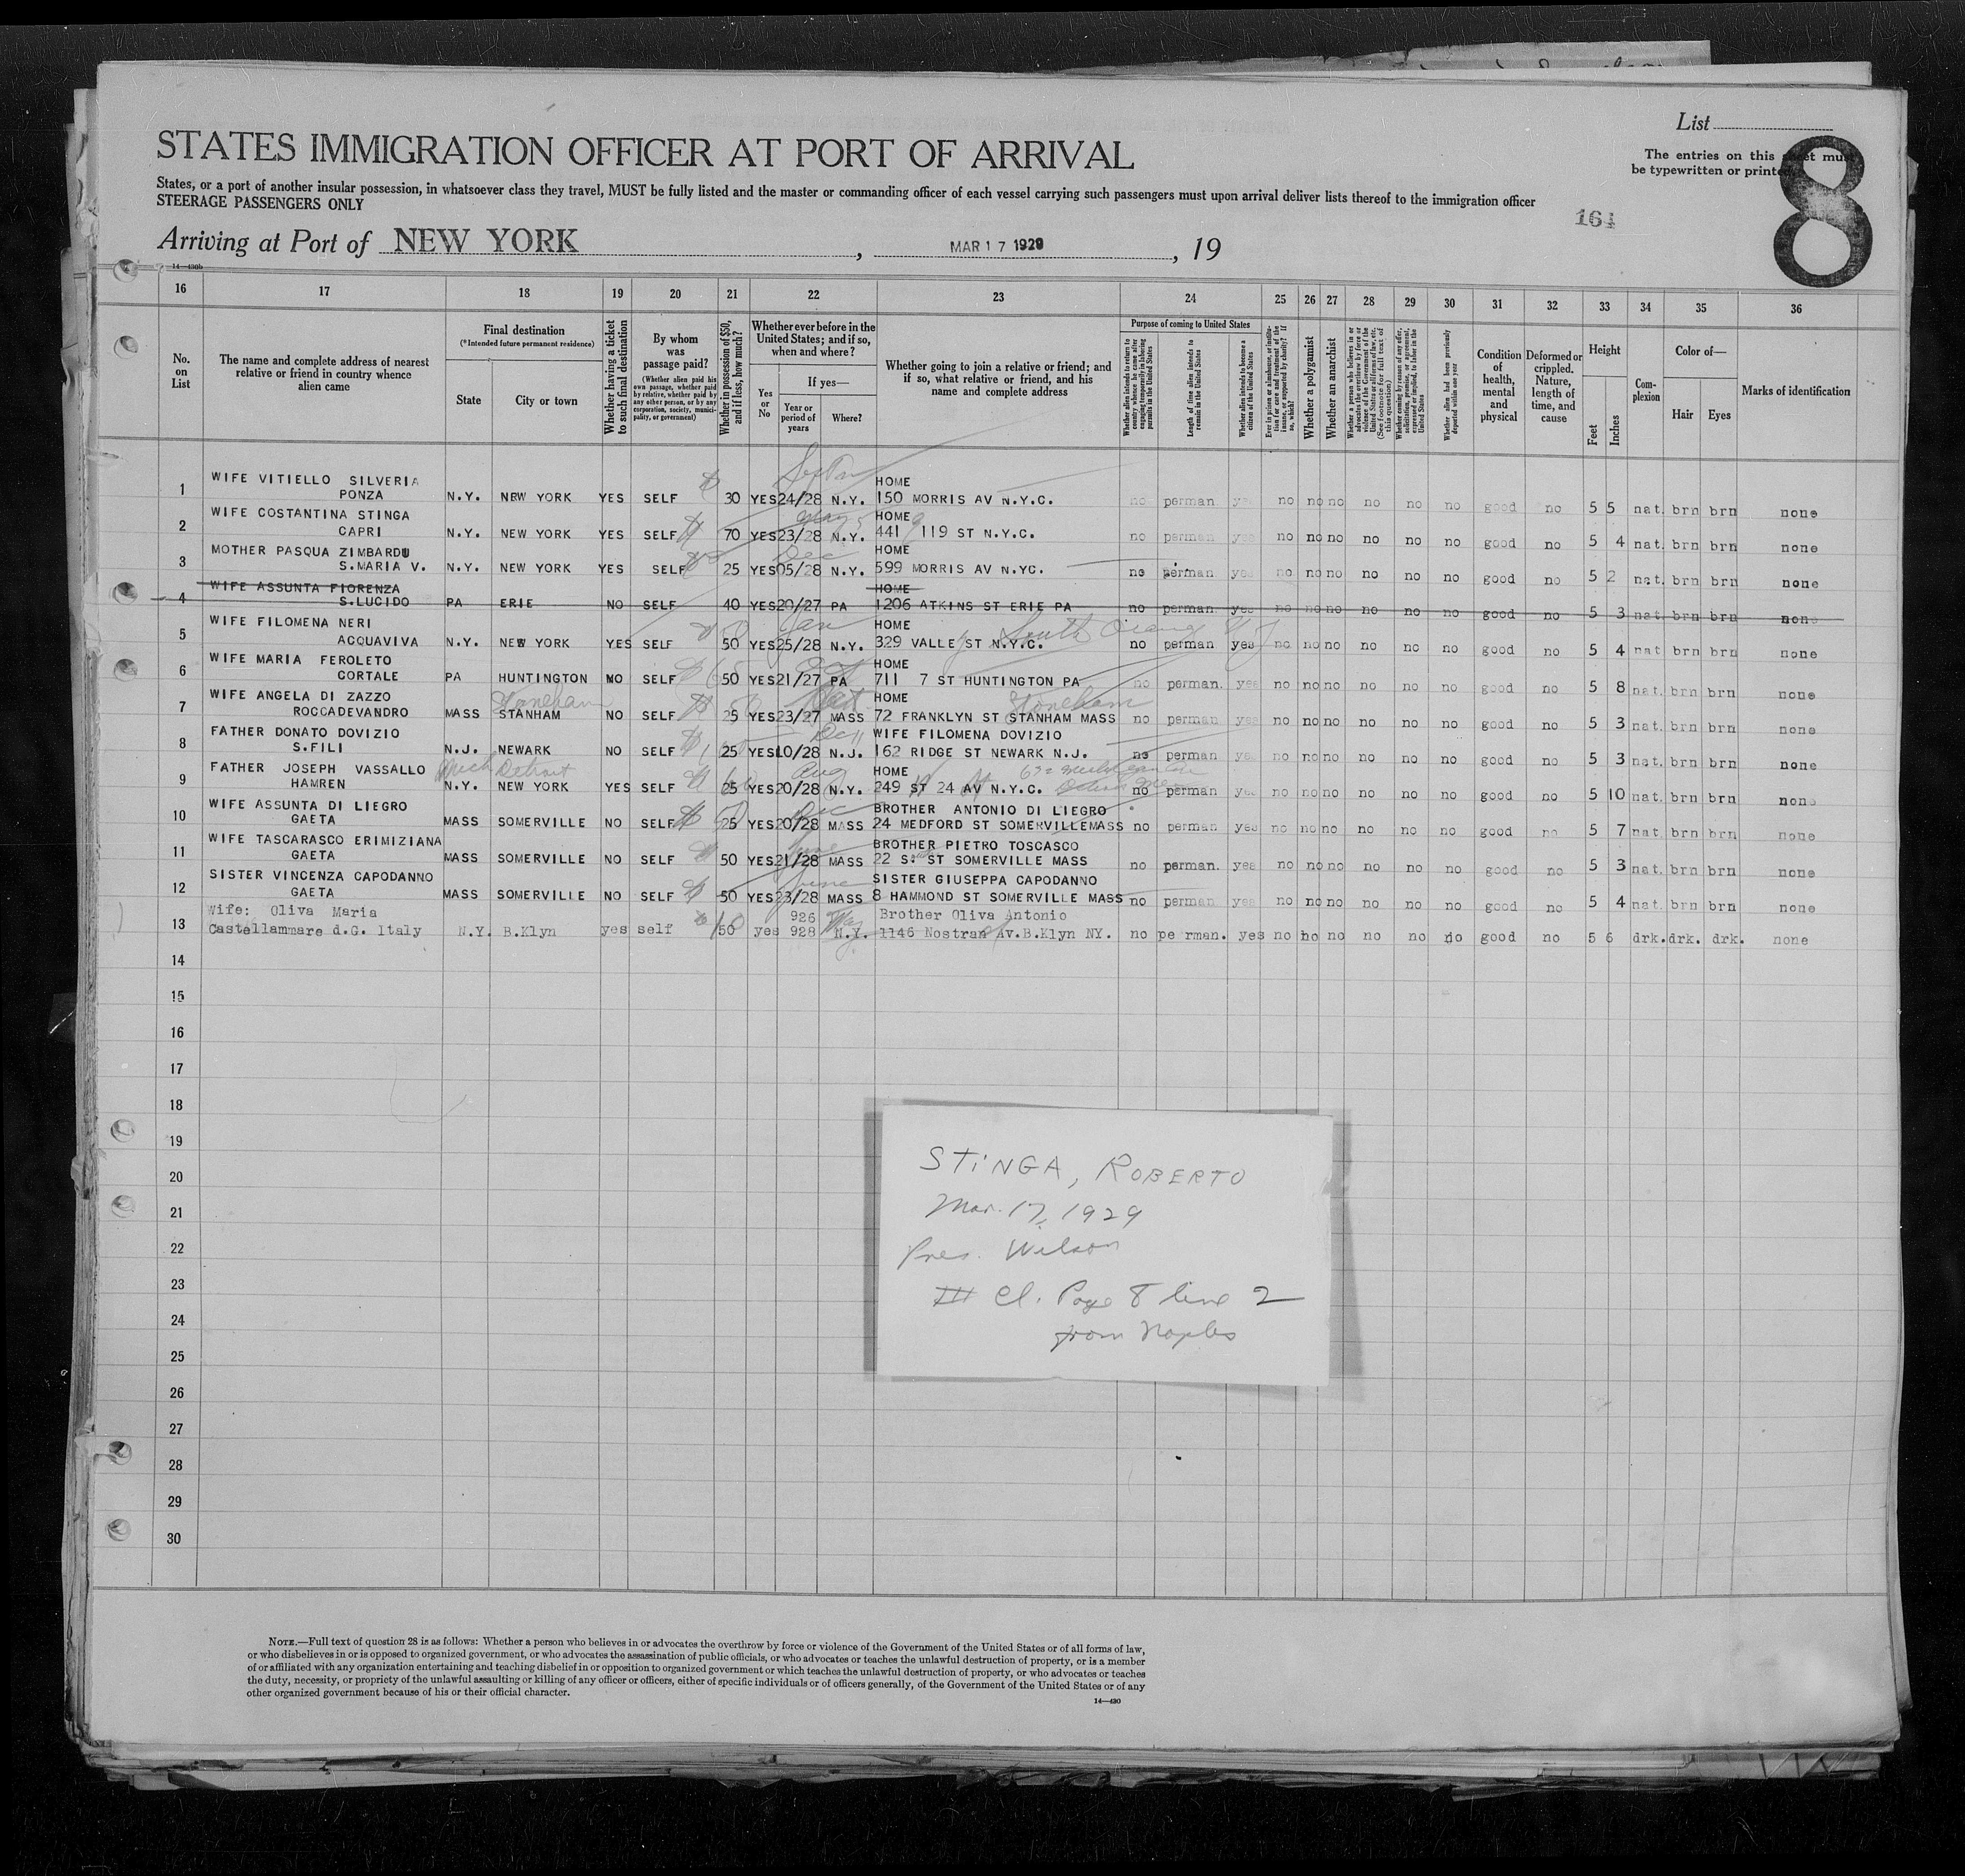 List
STATES IMMIGRATION OFFICER AT PORT OF ARRIVAL
The entries on this sheet must
be typewritten or printed
8
States, or a port of another insular possession, in whatsoever class they travel, MUST be fully listed and the master or commanding officer of each vessel carrying such passengers must upon arrival deliver lists thereof to the immigration officer
STEERAGE PASSENGERS ONLY
164
Arriving at Port of NEW YORK, MAR 17 1929, 19
14—430b
16 17 18 19 20 21 22 23 24 25 26 27 28 29 30 31 32 33 34 35 36
No. on List
The name and complete address of nearest relative or friend in country whence alien came
Final destination
(*Intended future permanent residence)
State
City or town
Whether having a ticket to such final destination
By whom was passage paid?
(Whether alien paid his own passage, whether paid by relative, whether paid by any other person, or by any corporation, society, municipality, or government)
Whether in possession of $50, and if less, how much?
Whether ever before in the United States; and if so, when and where?
Yes or No
If yes—
Year or period of years
Where?
Whether going to join a relative or friend; and if so, what relative or friend, and his name and complete address
Purpose of coming to United States
Whether alien intends to return to country whence he came after engaging temporarily in laboring pursuits in the United States
Length of time alien intends to remain in the United States
Whether alien intends to become a citizen of the United States
Ever in prison or almshouse, or institution for care and treatment of the insane, or supported by charity? If so, which?
Whether a polygamist
Whether an anarchist
Whether a person who believes in or advocates the overthrow by force or violence of the Government of the United States or all forms of law, etc. (See footnote for full text of this question)
Whether coming by reason of any offer, solicitation, promise, or agreement, expressed or implied, to labor in the United States
Whether alien had been previously deported within one year
Condition of health, mental and physical
Deformed or crippled. Nature, length of time, and cause
Height
Feet
Inches
Complexion
Color of—
Hair
Eyes
Marks of identification
WIFE VITIELLO SILVERIA HOME
1 PONZA N.Y. NEW YORK YES SELF $ 30 YES 24/28 N.Y. 150 MORRIS AV N.Y.C. no perman yes no no no no no no good no 5 5 nat. brn brn none
WIFE COSTANTINA STINGA May HOME
2 CAPRI N.Y. NEW YORK YES SELF $ 70 YES 23/28 N.Y. 441 119 ST N.Y.C. no perman yes no no no no no no good no 5 4 nat. brn brn none
MOTHER PASQUA ZIMBARDU Dec HOME
3 S.MARIA V. N.Y. NEW YORK YES SELF 25 YES 05/28 N.Y. 599 MORRIS AV N.YC. no perman yes no no no no no no good no 5 2 nat. brn brn none
WIFE ASSUNTA FIORENZA HOME
4 S.LUCIDO PA ERIE NO SELF 40 YES 20/27 PA 1206 ATKINS ST ERIE PA no perman yes no no no no no no good no 5 3 nat. brn brn none
WIFE FILOMENA NERI Jan HOME South Orange N J
5 ACQUAVIVA N.Y. NEW YORK YES SELF 50 YES 25/28 N.Y. 329 VALLEy ST N.Y.C. no perman yes no no no no no no good no 5 4 nat brn brn none
WIFE MARIA FEROLETO HOME
6 CORTALE PA HUNTINGTON NO SELF 50 YES 21/27 PA 711 7 ST HUNTINGTON PA no perman. yes no no no no no no good no 5 8 nat. brn brn none
WIFE ANGELA DI ZAZZO Stoneham HOME Stoneham
7 ROCCADEVANDRO MASS STANHAM NO SELF 25 YES 23/27 MASS 72 FRANKLYN ST STANHAM MASS no perman yes no no no no no no good no 5 3 nat. brn brn none
FATHER DONATO DOVIZIO Dec WIFE FILOMENA DOVIZIO
8 S.FILI N.J. NEWARK NO SELF 25 YES 10/28 N.J. 162 RIDGE ST NEWARK N.J. no perman yes no no no no no no good no 5 3 nat. brn brn none
FATHER JOSEPH VASSALLO Mich Detroit Aug HOME
9 HAMREN N.Y. NEW YORK YES SELF 25 YES 20/28 N.Y. 249 ST 24 AV N.Y.C. no perman yes no no no no no no good no 5 10 nat. brn brn none
WIFE ASSUNTA DI LIEGRO Dec BROTHER ANTONIO DI LIEGRO
10 GAETA MASS SOMERVILLE NO SELF $ 25 YES 20/28 MASS 24 MEDFORD ST SOMERVILLE MASS no perman yes no no no no no no good no 5 7 nat. brn brn none
WIFE TASCARASCO ERIMIZIANA June BROTHER PIETRO TOSCASCO
11 GAETA MASS SOMERVILLE NO SELF 50 YES 21/28 MASS 22 S. ST SOMERVILLE MASS no perman. yes no no no no no no good no 5 3 nat. brn brn none
SISTER VINCENZA CAPODANNO June SISTER GIUSEPPA CAPODANNO
12 GAETA MASS SOMERVILLE NO SELF $ 50 YES 23/28 MASS 8 HAMMOND ST SOMERVILLE MASS no perman yes no no no no no no good no 5 4 nat. brn brn none
Wife: Oliva Maria 926 Brother Oliva Antonio
13 Castellammare d.G. Italy N.Y. B.Klyn yes self 50 yes 928 N.Y. 1146 Nostran Av.B.Klyn NY. no pe rman. yes no no no no no no good no 5 6 drk. drk. drk. none
14
15
16
17
18
19
20
21
22
23
24
25
26
27
28
29
30
STINGA, ROBERTO
Mar. 17, 1929
Pres. Wilson
III Cl. Page 8 line 2
from Naples
NOTE.—Full text of question 28 is as follows: Whether a person who believes in or advocates the overthrow by force or violence of the Government of the United States or of all forms of law,
or who disbelieves in or is opposed to organized government, or who advocates the assassination of public officials, or who advocates or teaches the unlawful destruction of property, or is a member
of or affiliated with any organization entertaining and teaching disbelief in or opposition to organized government or which teaches the unlawful destruction of property, or who advocates or teaches
the duty, necessity, or propriety of the unlawful assaulting or killing of any officer or officers, either of specific individuals or of officers generally, of the Government of the United States or of any
other organized government because of his or their official character.
14—430